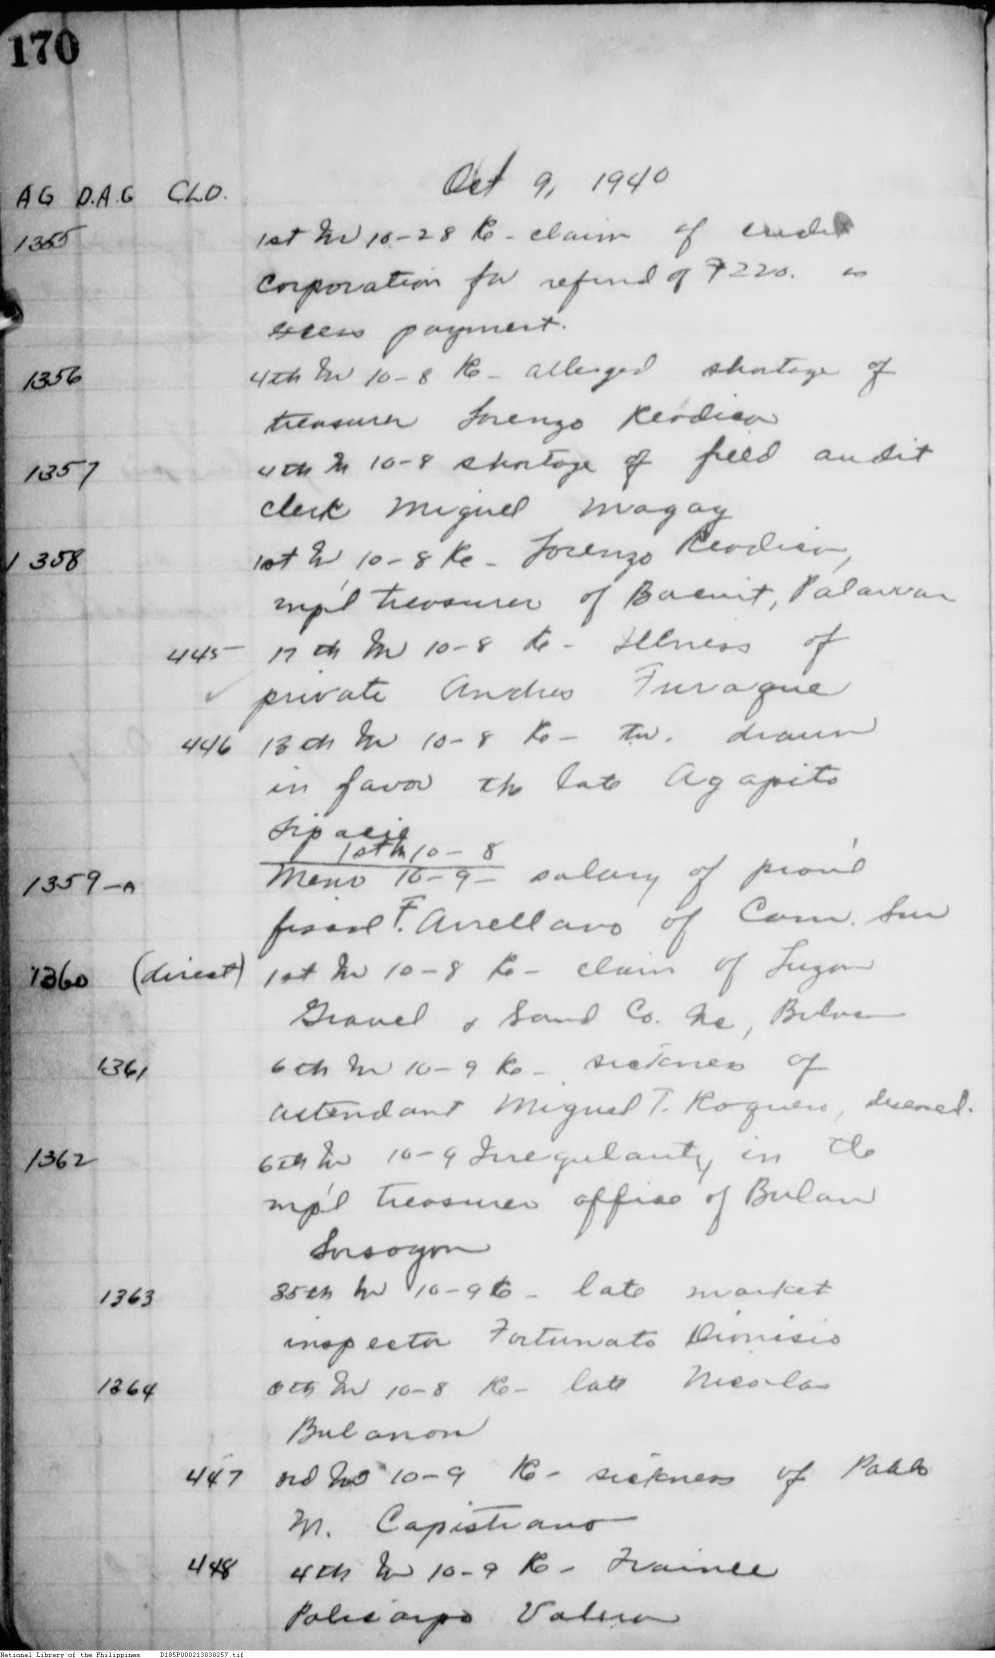 170
Oct 9, 1940
AG D.A.G CLD.
1355 1st In 10-28 Re - claim of credit
Corporation for refund of ₱220. as
excess payment.
1356 4th In 10-8 Re - alleged shortage of
treasurer Lorenzo Reodica
1357 4th In 10-8 shortage of field audit
clerk Miguel Magay
1358 1st In 10-8 Re - Lorenzo Reodica,
mp'l treasurer of Bacuit, Palawan
445 17th In 10-8 Re - Illness of
private Andres Furaque
446 13th In 10-8 Re - Tw. drawn
in favor the late Agapito
1st In 10-8
1359-A Memo 10-9- salary of prov'l
fiscal F. Arrellano of Cam. Sur
1360 (direct) 1st In 10-8 Re - claim of Luzon
Gravel & Sand Co. Inc,
1361 6th In 10-9 Re - sickness of
attendant Miguel T. Roguero, deceased.
1362 6th In 10-9 Irregularity in the
mp'l treasurer office of Bulan
Sorsogon
1363 35th In 10-9 Re - late market
inspector Fortunato Dionisio
1364 6th In 10-8 Re - late Nicolas
Bulanon
447 3rd In 10-9 Re - sickness of Pablo
M. Capistrano
448 4th In 10-9 Re - Trainee
Policarpo Valera
National Library of the Philippines D185P000213038257.tif